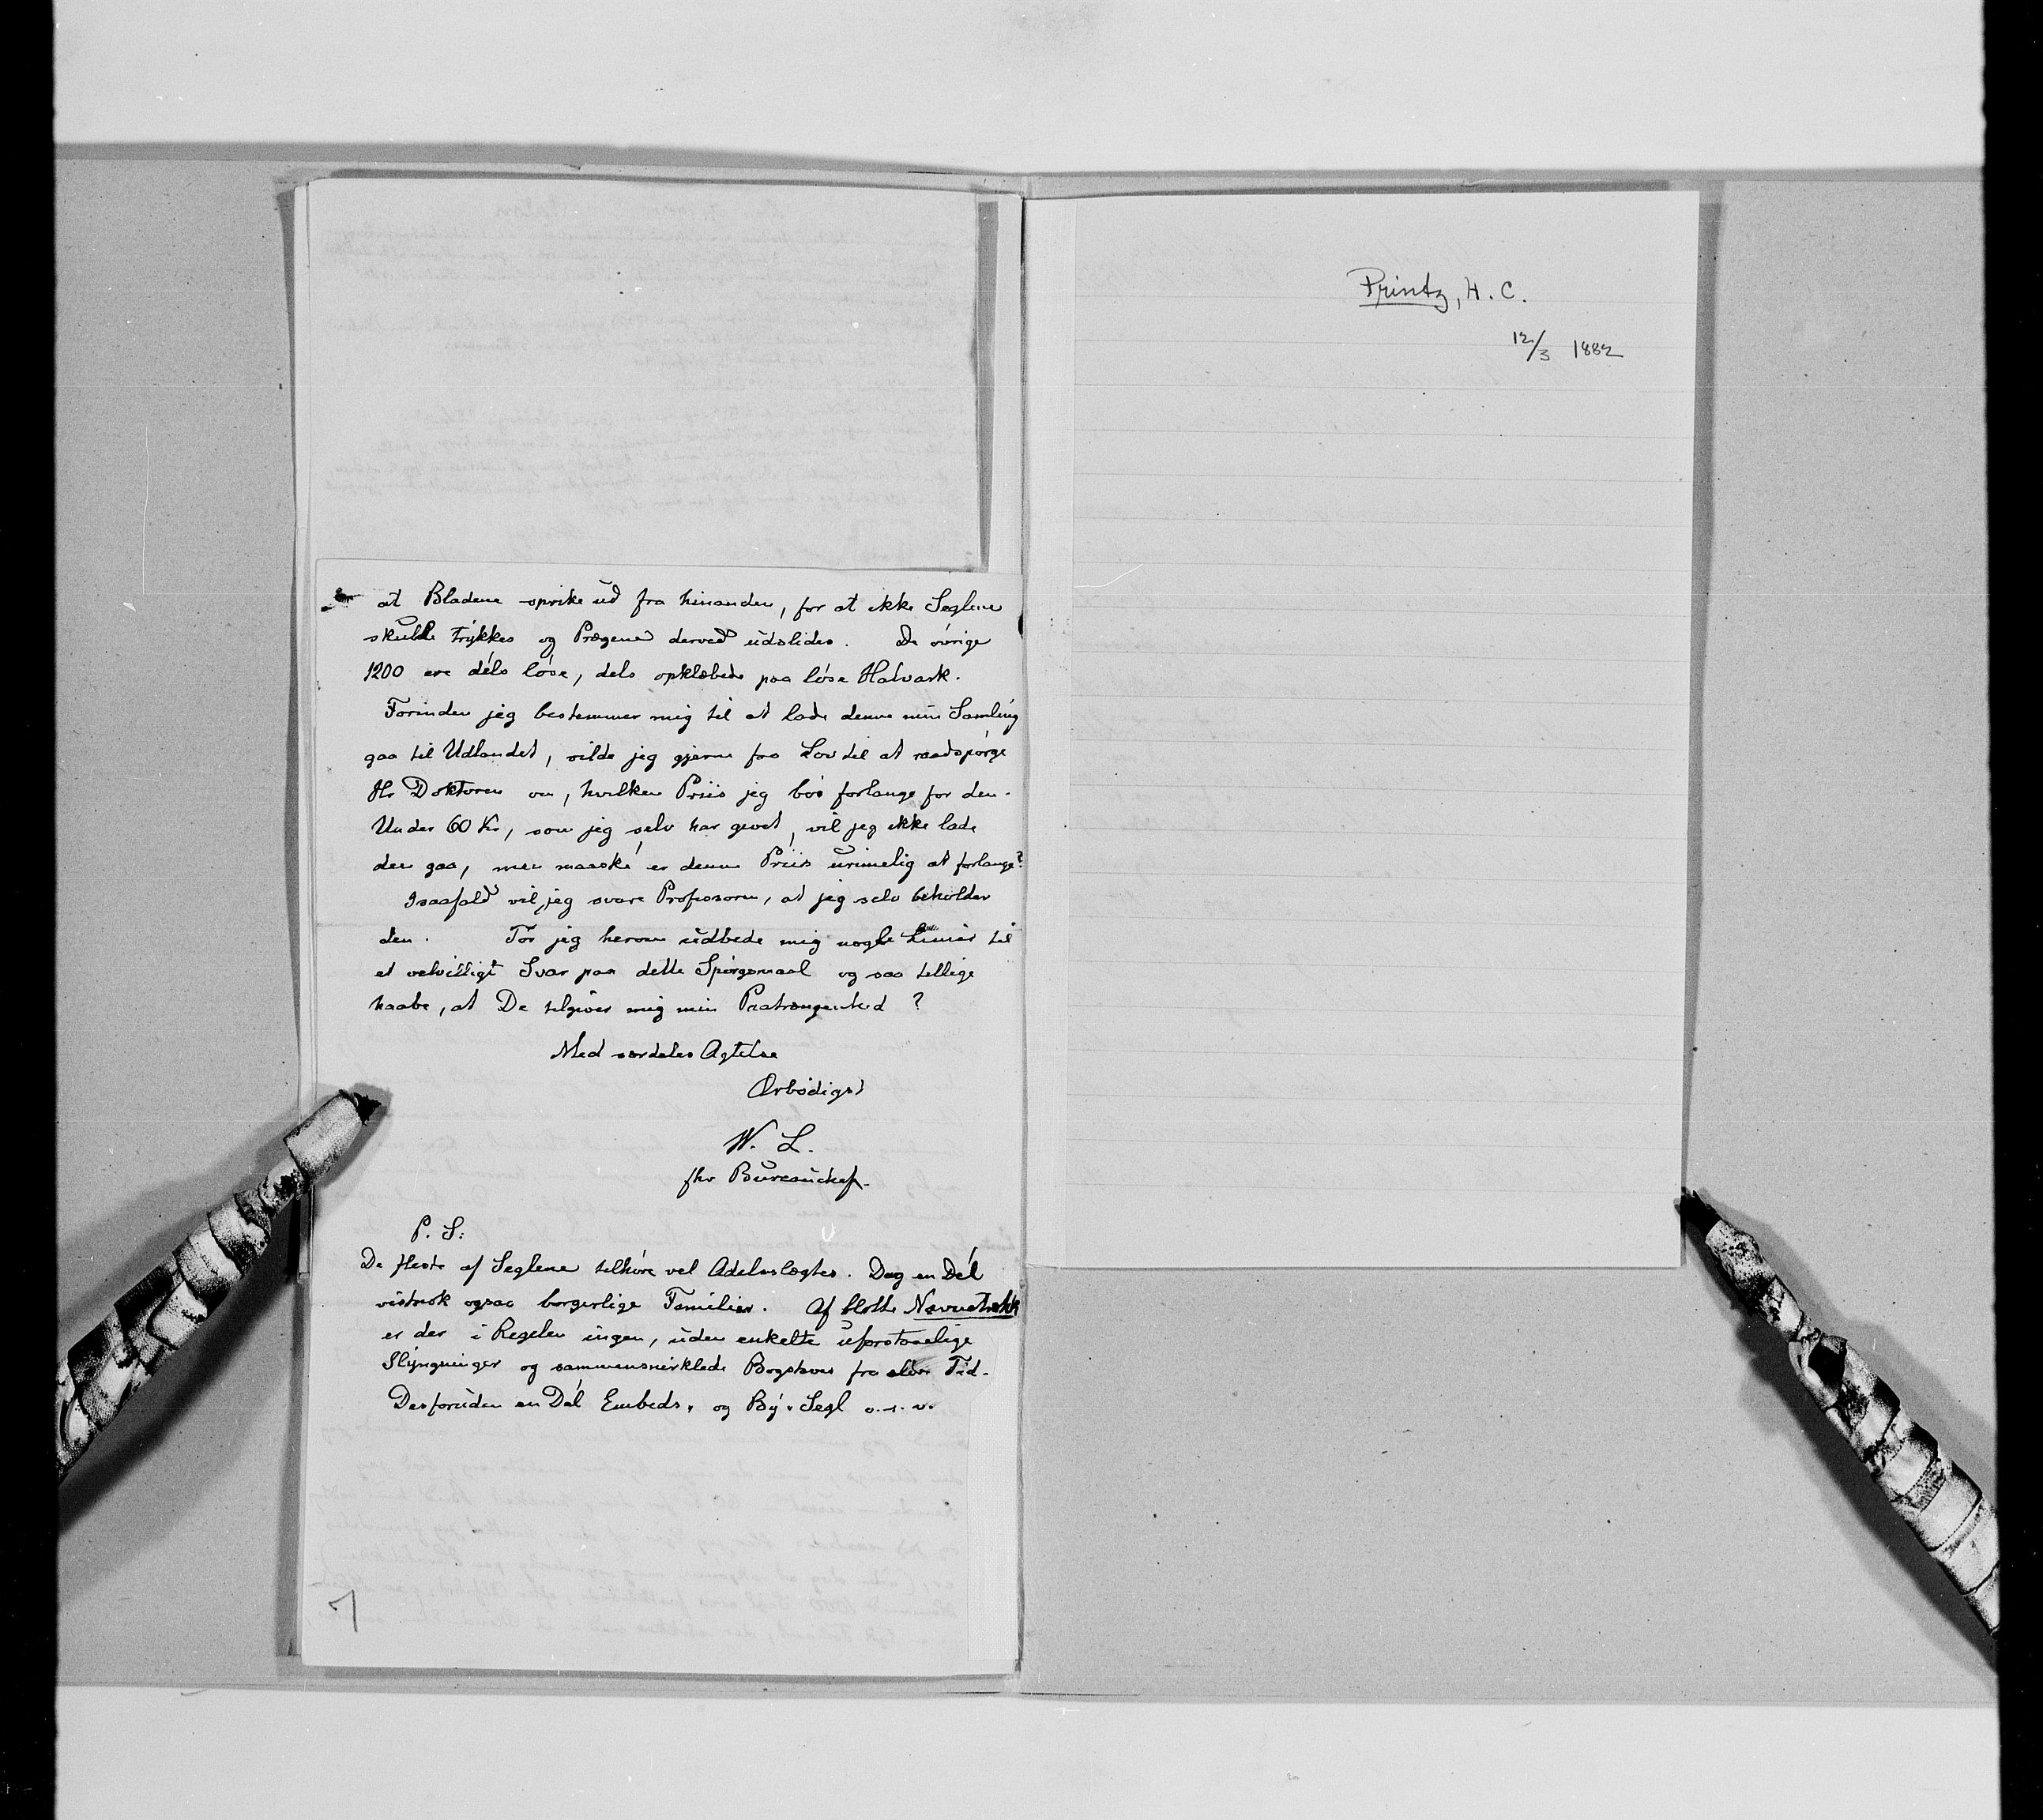 at Bladene sprike ud fra hinanden, for at ikke Seglene
skulde trykkes og Prægene derved udslides. De øvrige
1200 ere dels løse, dels opklæbede paa løse Halvark.
Forinden jeg bestemmer mig til at lade denne min Samling
gaa til Udlandet, vilde jeg gjerne faa Lov til at raadspørge
Hr Doktoren om, hvilken Priis jeg bør forlange for den.
Under 60 Kr, som jeg selv har givet, vil jeg ikke lade
den gaa, men maaské er denne Priis urimelig at forlange?
Isaafald vil jeg svare Professoren, at jeg selv beholder
den. Tør jeg herom udbede mig nogle Linier til
et velvilligt Svar paa dette Spørgsmaal og saa tillige
haabe, at De tilgiver mig min Paatrængenhed?
Med særdeles Agtelse
Ærbødigst
W. L.
fhv Bureauchef.
P. S:
De fleste af Seglene tilhøre vel Adelsslægter. Dog en Dél
vistnok ogsaa borgerlige Familier. Af blotte Navnetrækk
er der i Regelen ingen, uden enkelte uforstaaelige
Slyngninger og sammensnirklede Bogstaver fra eldre Tid.
Desforuden en Dél Embeds- og By-Segl o. s. v.
7
Printz, H. C.
12/3 1882